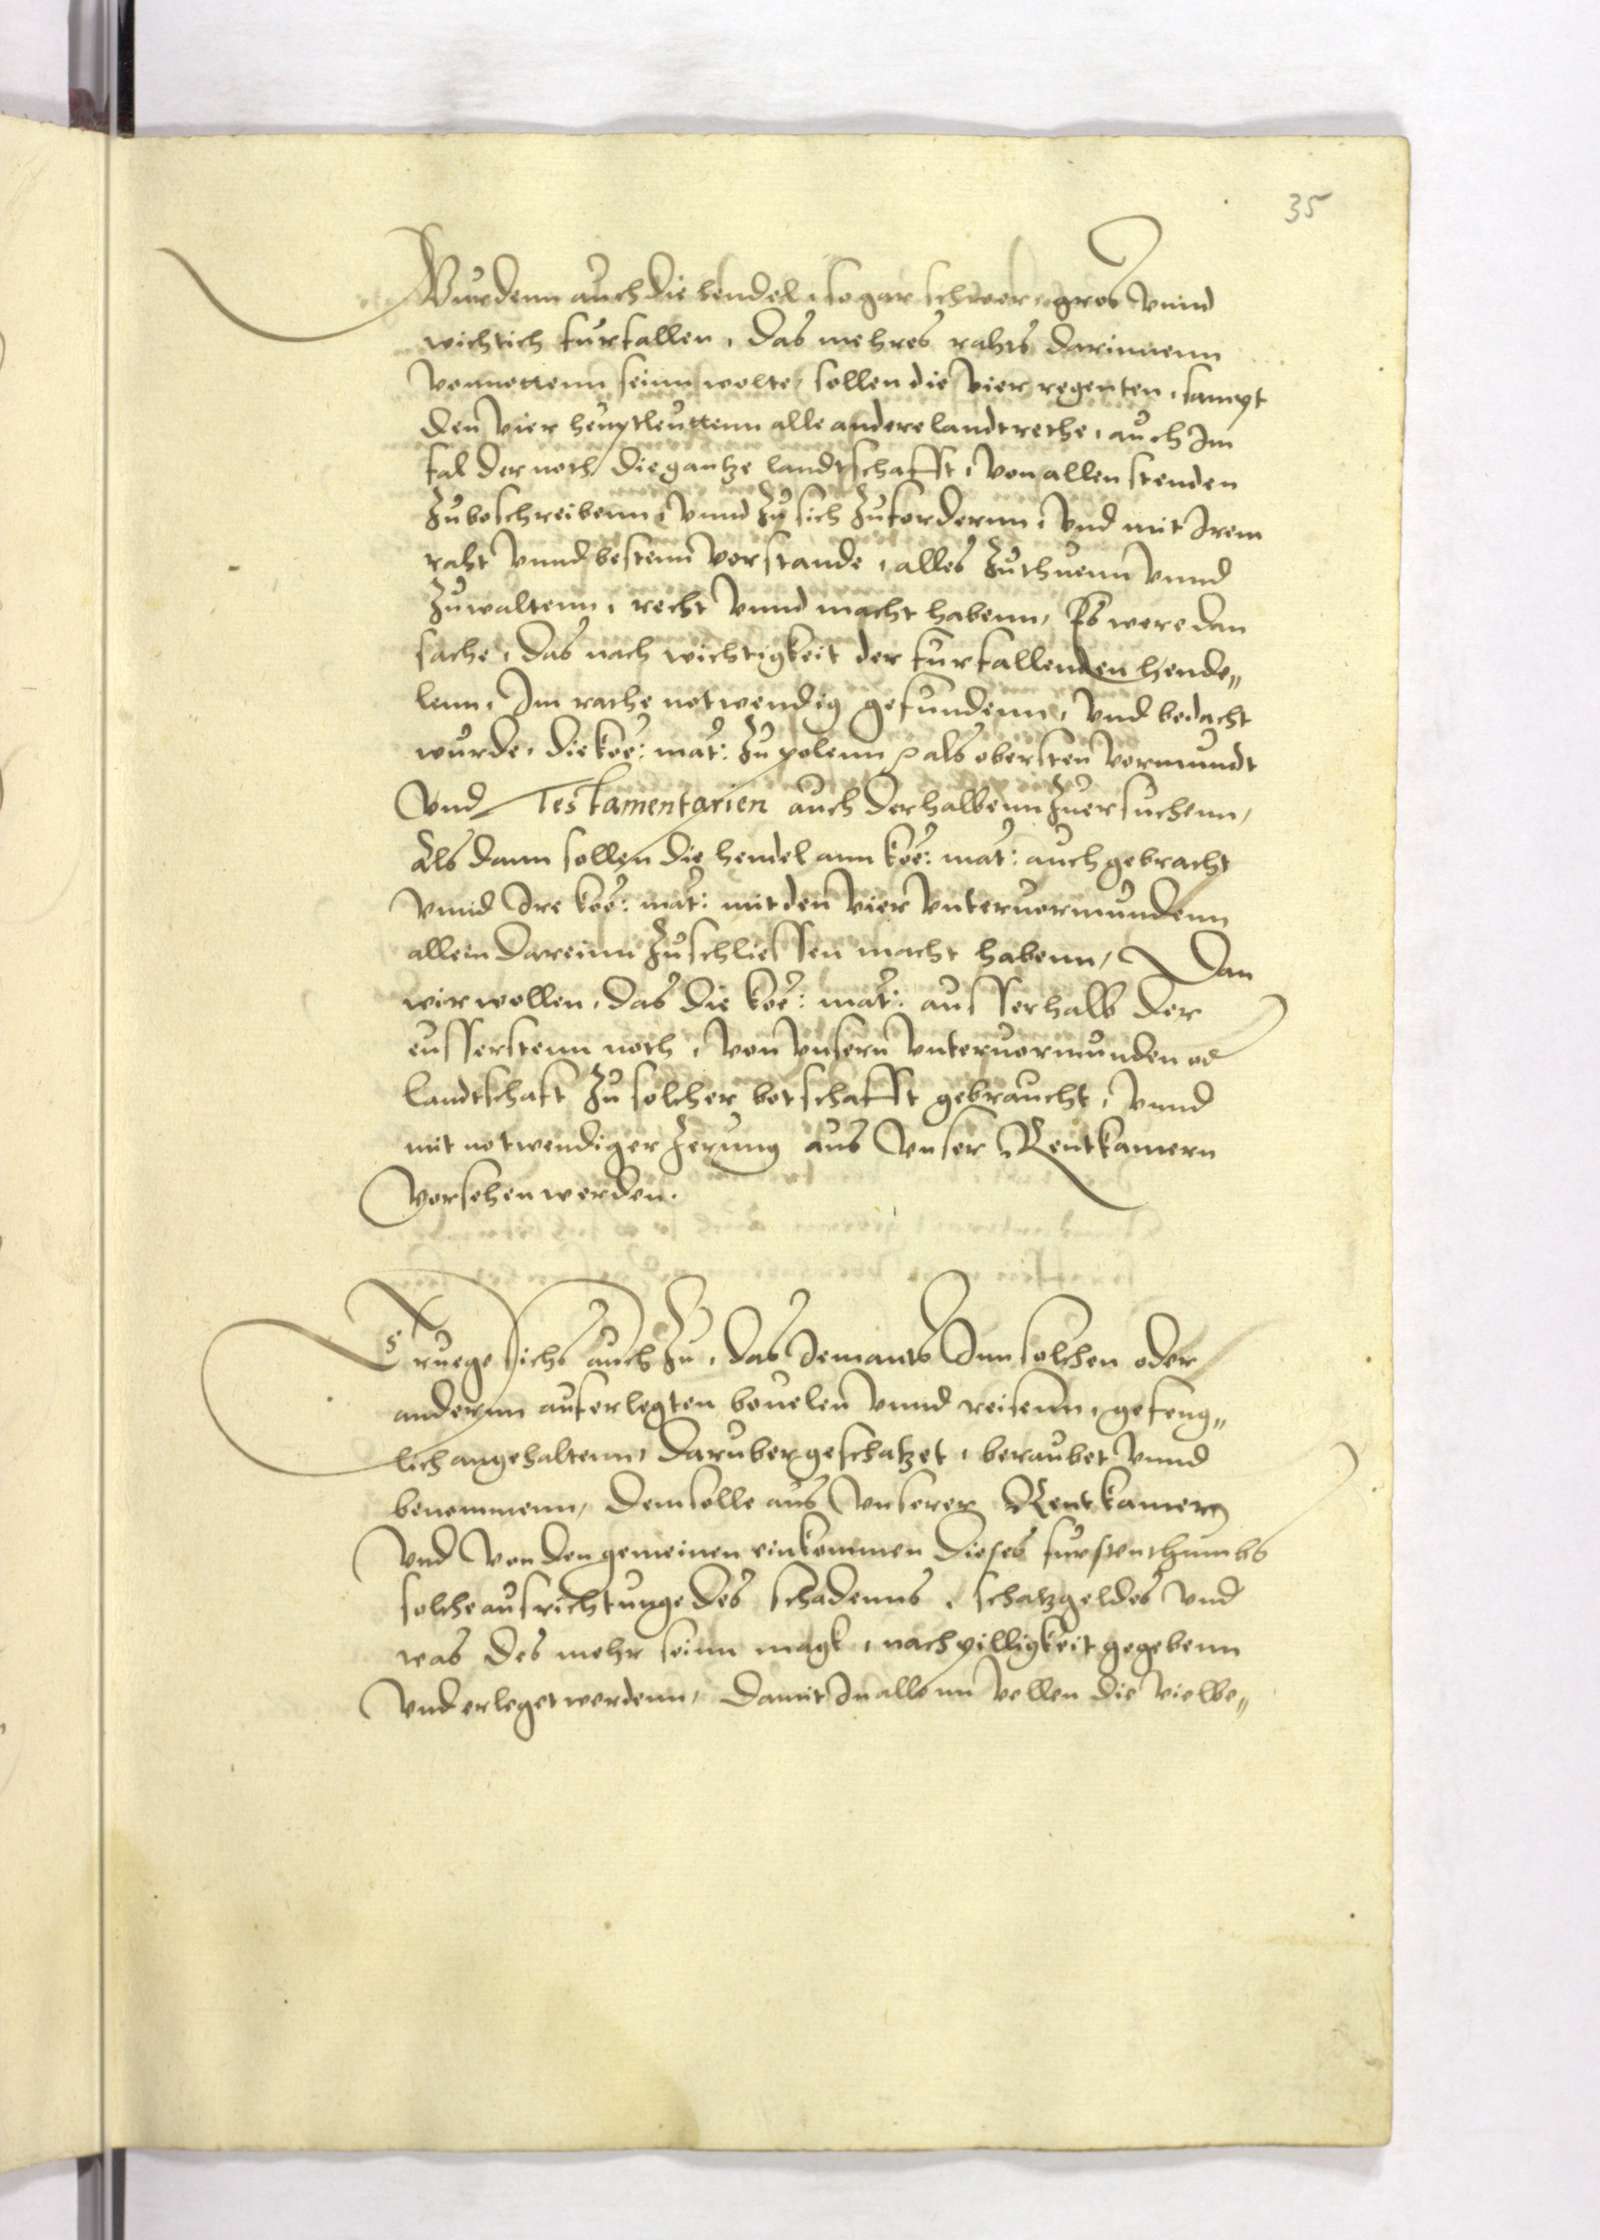 35
Wurdenn auch die hendel, so gar schwer, gros vnnd
wichtich furfallen, das mehres rahts darinnenn
vonnottenn seinn wolte, sollen die vier regenten, sampt
den vier heuptleuttenn alle andere landtrethe, auch Im
fal der noth die gantze landtschafft, von allen stenden
Zubeschreibenn, vnnd Zu sich Zufordernn, vnd mit Irem
raht vnnd bestenn verstande, alles Zuthuenn vnnd
Zuwaltenn, recht vnnd macht habenn, Es were dan
sache, das nach wichtigkeit der furfallenden hende„
lenn, Im rathe notwendig gefundenn, vnd bedacht
wurde, die koe: mat: Zu polenn als obersten vormundt
vnd Testamentarien auch derhalbenn Zuersuchenn,
Als dann sollen die hendel ann koe: mat: auch gebracht
vnnd Ire koe: mat: mit den vier vnteruormundenn
allein dareinn Zuschliessen macht habenn, Dan
wir wollen, das die koe: mat: ausserhalb der
eussersten noth, von vnsern vnteruormunden od
landtschaft Zu solcher botschafft gebraucht, vnnd
mit notwendiger Zerung aus vnser Rentkamern
vorsehen werden.
Truege sichs auch Zu, das Iemants Inn solchen oder
andernn auferlegten beuelen vnnd reisenn, gefeng„
lich angehaltenn, daruber geschatzet, beraubet vnnd
benommenn, dem solle aus vnserer Rentkamern
vnd von den gemeinen einkommen dieses furstenthumbs
solche ausrichtunge des schadenns, schatzgeldes vnd
was des mehr seinn magk, nach pilligkeit gegebenn
vnd erleget werdenn, damit In allenn vellen die vielbe„